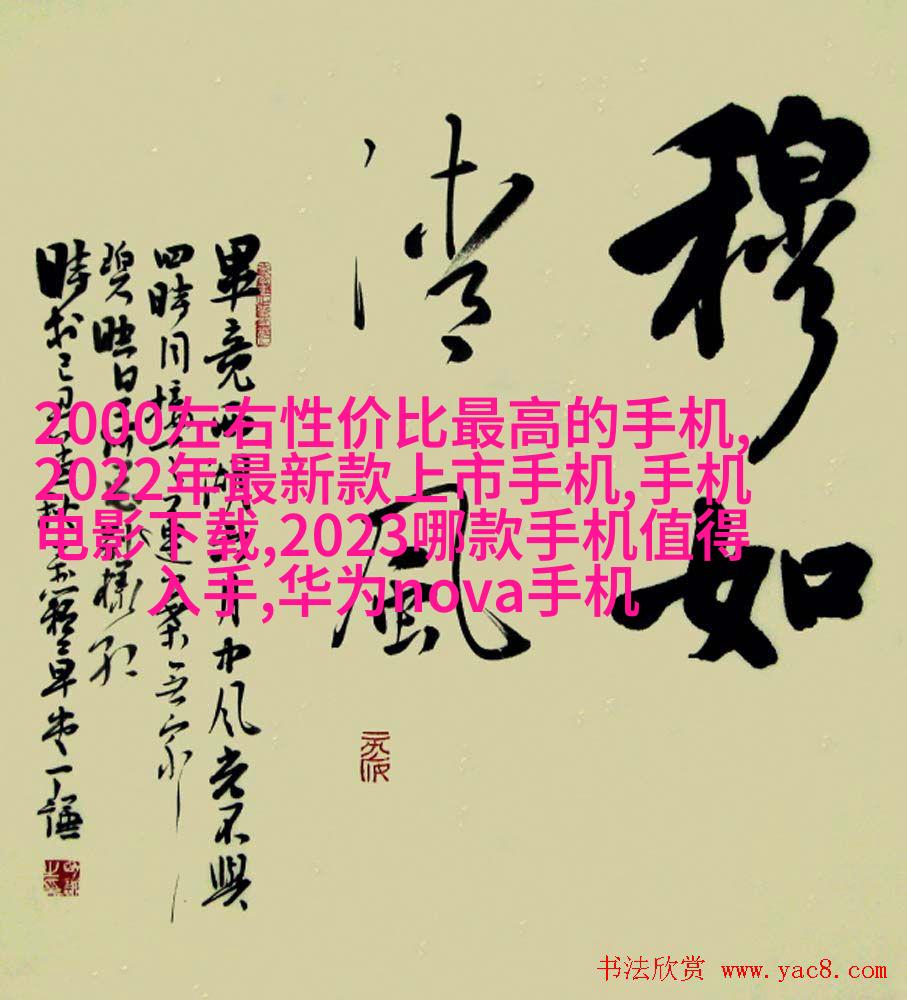 穆如
清風
畢竟西湖六月中風光不與
四時同接天蓮葉無窮
碧映日荷花別樣紅
2000左右性价比最高的手机,
2022年最新款上市手机,手机
电影下载,2023哪款手机值得
入手,华为nova手机
书法欣赏 www.yac8.com